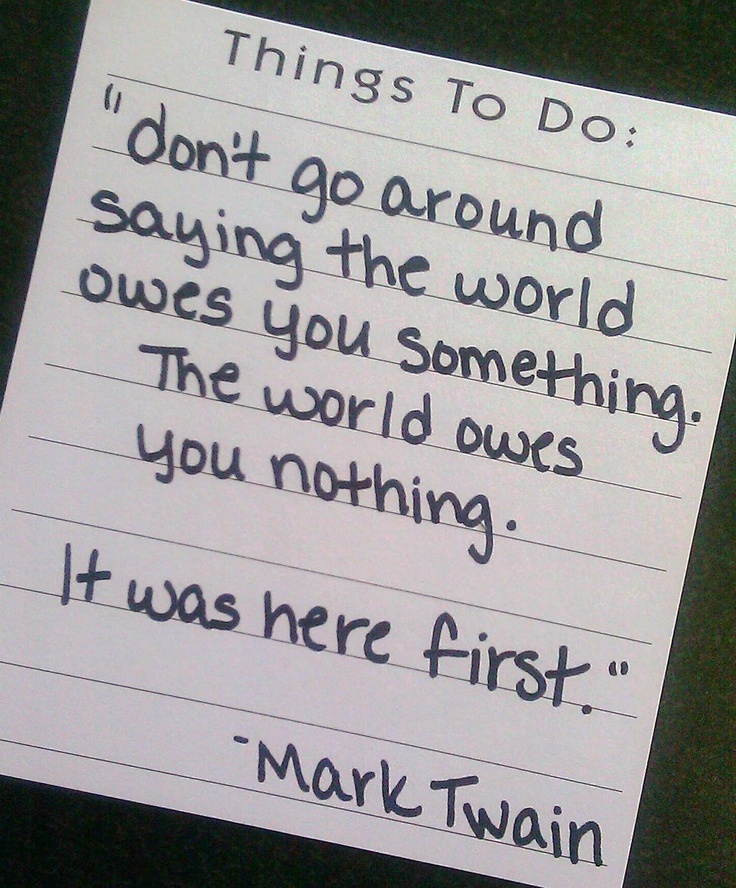 Things To Do:
"don't go around
saying the world
owes you something.
The world owes
you nothing.
It was here first."
-Mark Twain